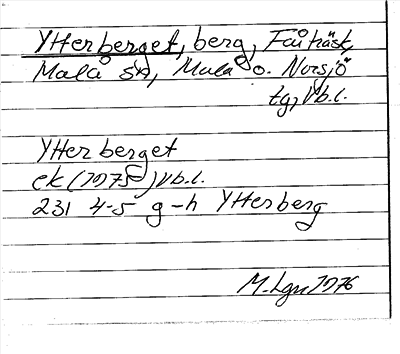 Ytterberget, berg, Fårträsk,
Malå sn, Malå o. Norsjö
tg, Vb.l.
Ytterberget
ek (1975) Vb.l.
231 4-5 g-h Ytterberg
M. Lgn 1976